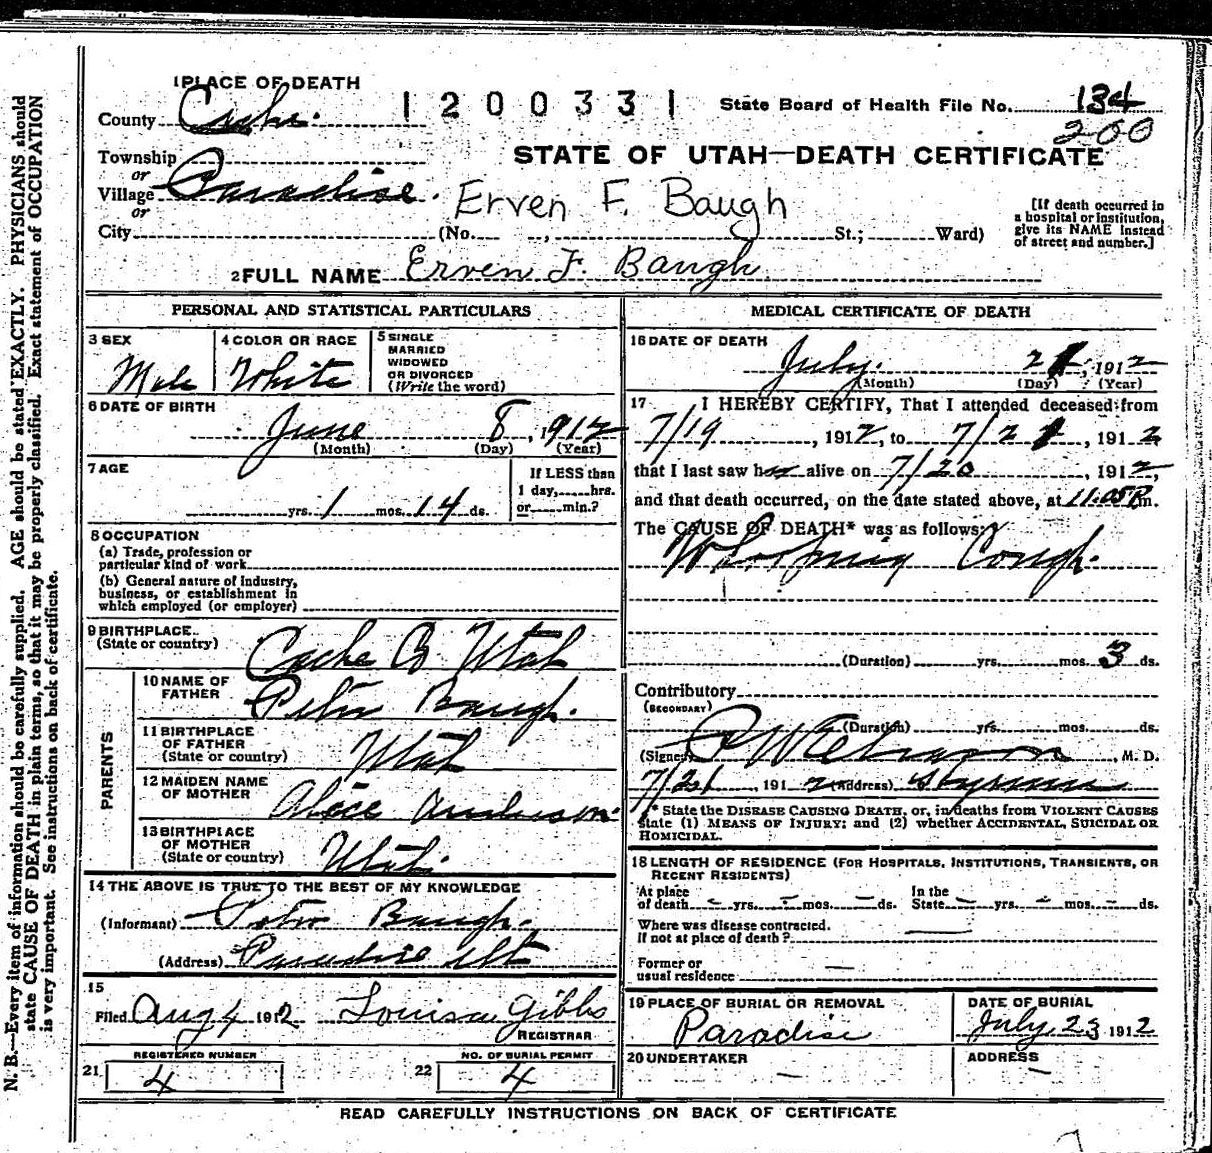 1 PLACE OF DEATH
1200331
State Board of Health File No. 134
200
County Cache.
STATE OF UTAH—DEATH CERTIFICATE
Township
or
Village Paradise.
or
City (No. , St.; Ward)
Erven F. Baugh
[If death occurred in
a hospital or institution,
give its NAME instead
of street and number.]
2 FULL NAME Erven F. Baugh
PERSONAL AND STATISTICAL PARTICULARS
3 SEX
Male
4 COLOR OR RACE
White
5 SINGLE
MARRIED
WIDOWED
OR DIVORCED
(Write the word)
6 DATE OF BIRTH
June 8, 1912
(Month) (Day) (Year)
7 AGE
yrs. 1 mos. 14 ds.
If LESS than
1 day, hrs.
or min.?
8 OCCUPATION
(a) Trade, profession or
particular kind of work
(b) General nature of industry,
business, or establishment in
which employed (or employer)
9 BIRTHPLACE
(State or country)
Cache Co Utah
PARENTS
10 NAME OF
FATHER
Peter Baugh.
11 BIRTHPLACE
OF FATHER
(State or country)
Utah
12 MAIDEN NAME
OF MOTHER
Alice
13 BIRTHPLACE
OF MOTHER
(State or country)
Utah.
14 THE ABOVE IS TRUE TO THE BEST OF MY KNOWLEDGE
(Informant) Peter Baugh.
(Address) Paradise Ut
15
Filed Aug 4 1912 Louisa Gibbs
REGISTRAR
REGISTERED NUMBER
21 4
NO. OF BURIAL PERMIT
22 4
MEDICAL CERTIFICATE OF DEATH
16 DATE OF DEATH
July. 21, 1912
(Month) (Day) (Year)
17 I HEREBY CERTIFY, That I attended deceased from
7/19, 1912, to 7/21, 1912
that I last saw h alive on 7/20, 1912,
and that death occurred, on the date stated above, at 11.05 P.m.
The CAUSE OF DEATH* was as follows:
Whooping Cough.
(Duration) yrs. mos. 3 ds.
Contributory
(SECONDARY)
(Duration) yrs. mos. ds.
(Signed) , M. D.
7/21, 1912 (Address)
* State the DISEASE CAUSING DEATH, or, in deaths from VIOLENT CAUSES
state (1) MEANS OF INJURY; and (2) whether ACCIDENTAL, SUICIDAL OR
HOMICIDAL.
18 LENGTH OF RESIDENCE (FOR HOSPITALS, INSTITUTIONS, TRANSIENTS, OR
RECENT RESIDENTS)
At place
of death - yrs. - mos. - ds.
In the
State - yrs. - mos. - ds.
Where was disease contracted.
If not at place of death?
Former or
usual residence —
19 PLACE OF BURIAL OR REMOVAL
Paradise
DATE OF BURIAL
July 23 1912
20 UNDERTAKER
—
ADDRESS
—
READ CAREFULLY INSTRUCTIONS ON BACK OF CERTIFICATE
N. B.—Every item of information should be carefully supplied. AGE should be stated EXACTLY. PHYSICIANS should
state CAUSE OF DEATH in plain terms, so that it may be properly classified. Exact statement of OCCUPATION
is very important. See instructions on back of certificate.